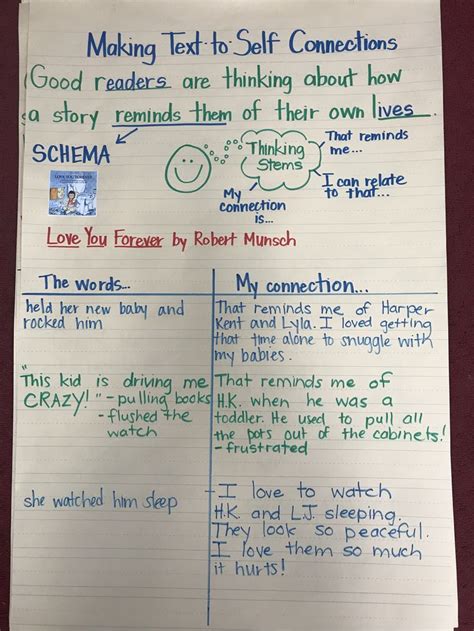 Making Text-to-Self Connections
Good readers are thinking about how
a story reminds them of their own lives.
SCHEMA
Thinking
Stems
That reminds
me...
I can relate
to that...
My
connection
is...
LOVE YOU FOREVER
Love You Forever by Robert Munsch
The words...
My connection...
held her new baby and
rocked him
That reminds me of Harper
Kent and Lyla. I loved getting
that time alone to snuggle with
my babies.
"This kid is driving me
CRAZY!" - pulling books
- flushed the
watch
That reminds me of
H.K. when he was a
toddler. He used to pull all
the pots out of the cabinets!
- frustrated
she watched him sleep
I love to watch
H.K. and L.J. sleeping.
They look so peaceful.
I love them so much
it hurts!